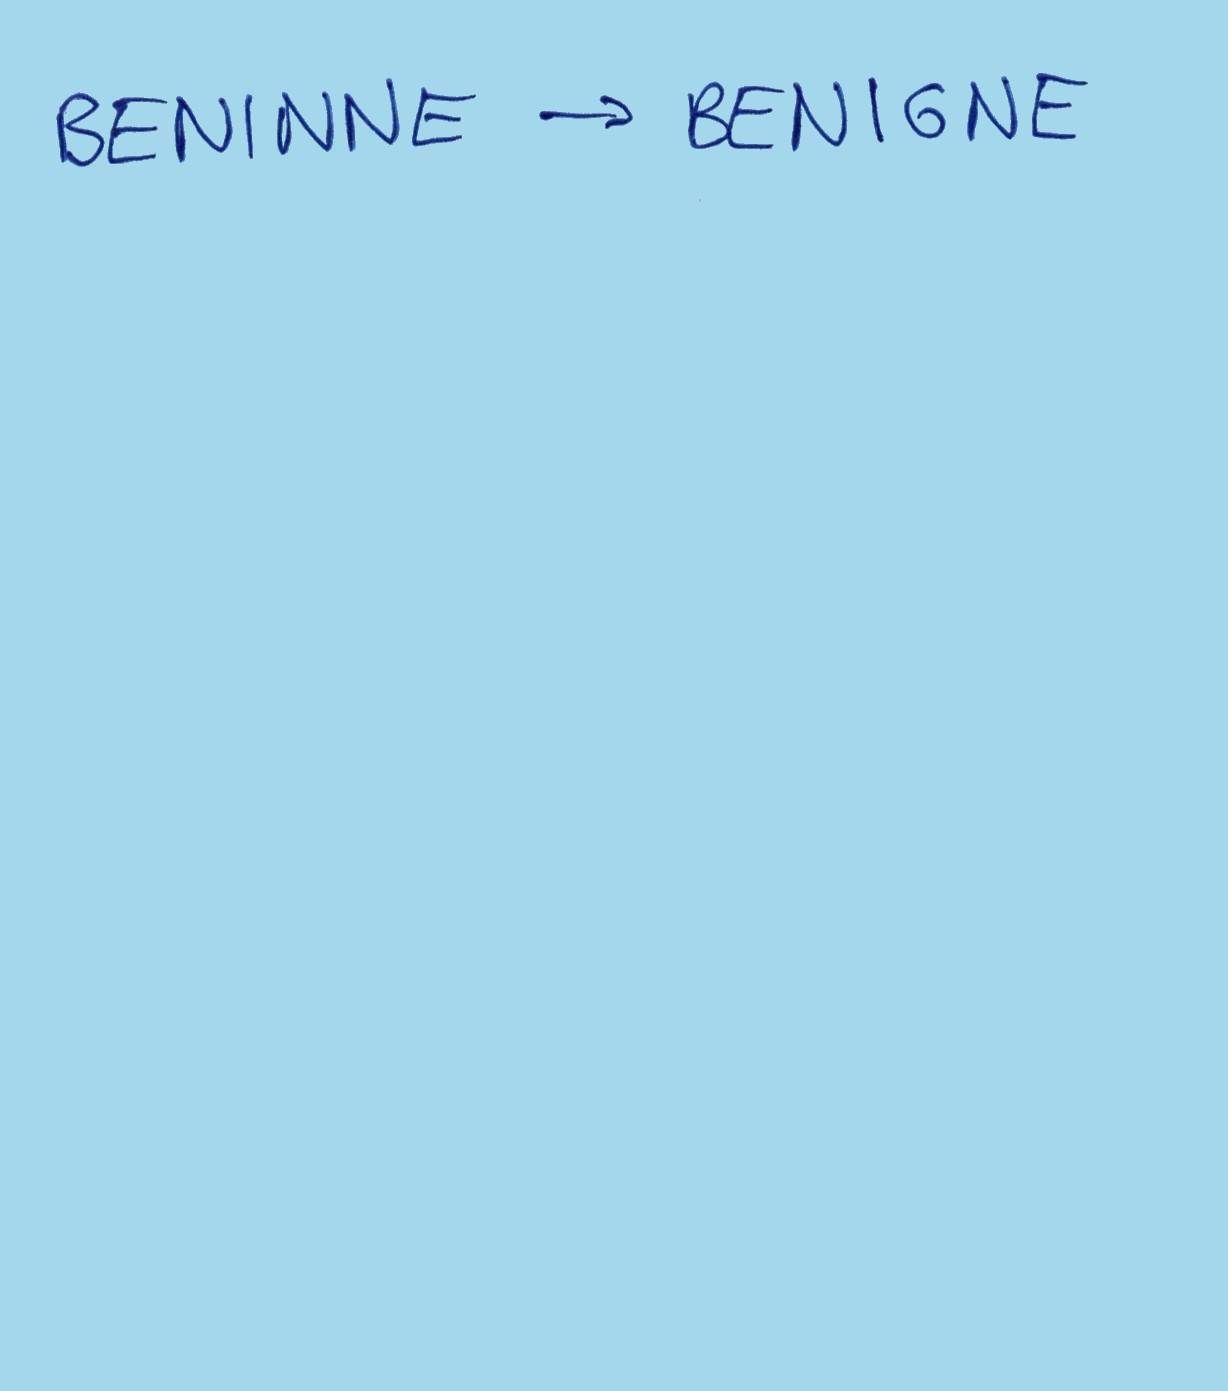 BENINNE → BENIGNE